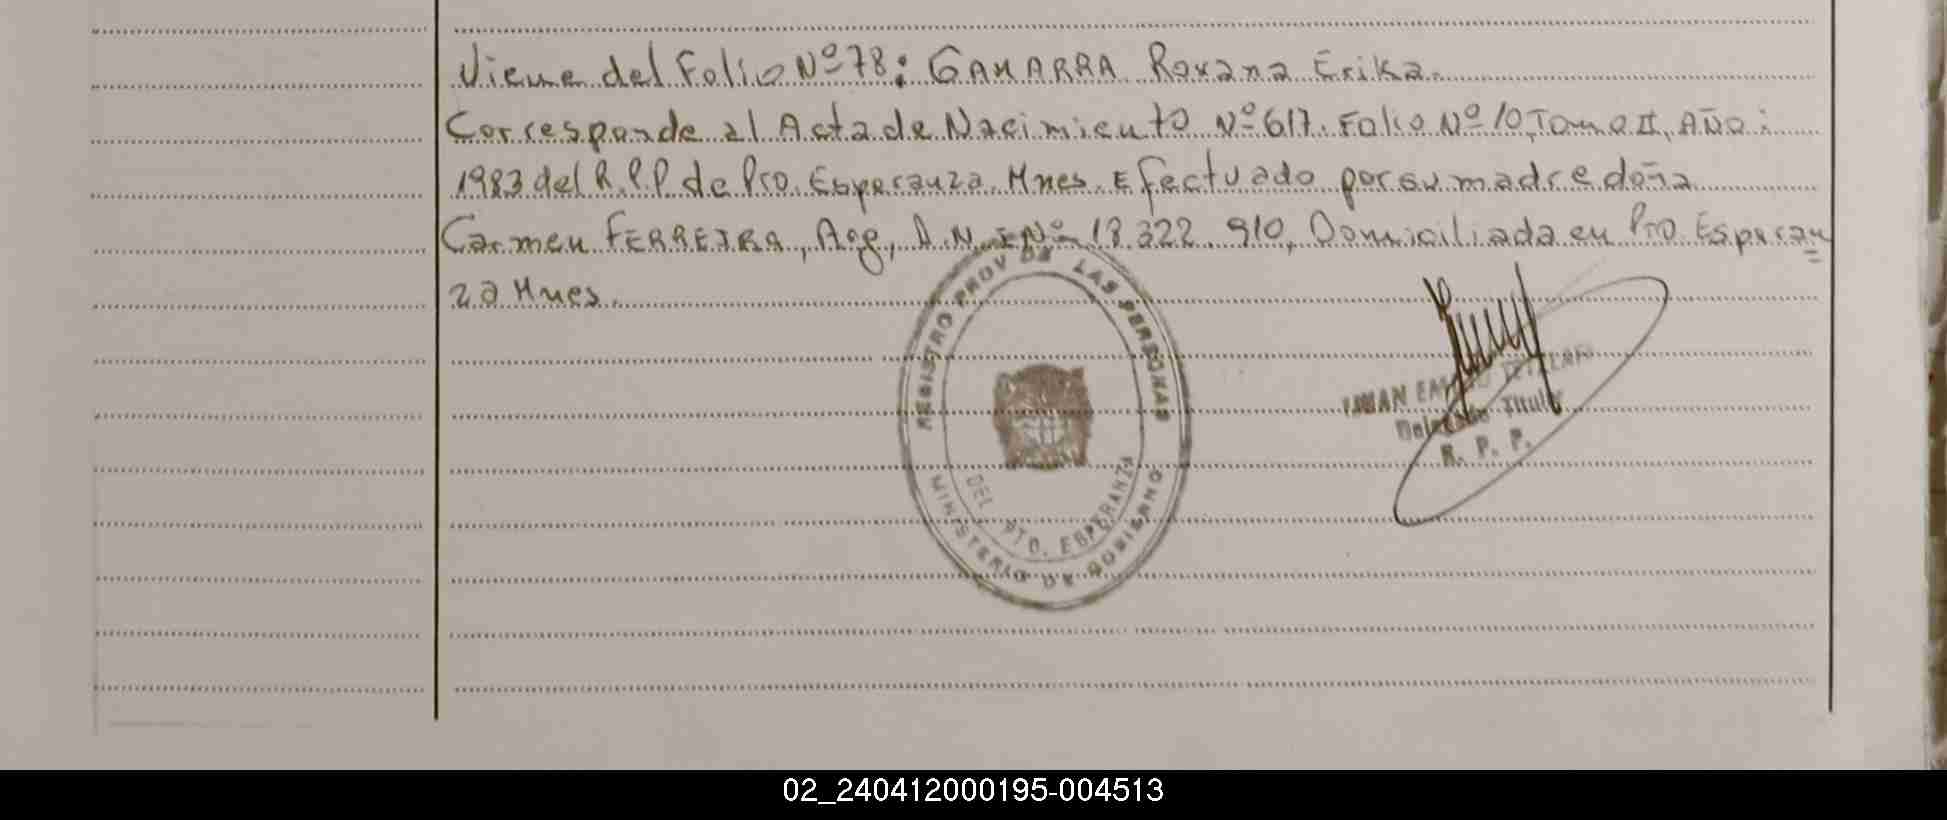 Viene del Folio Nº 78: GAMARRA Roxana Erika.
Corresponde al Acta de Nacimiento Nº 617. Folio Nº 10, Tomo II, Año:
1983 del R.P.P de Pto. Esperanza. Mnes. Efectuado por su madre doña
Carmen FERREIRA, Arg, D.N.I Nº 18.322.910, Domiciliada en Pto. Esperan
za Mnes.
REGISTRO PROV DE LAS PERSONAS
DEL PTO. ESPERANZA
MINISTERIO DE GOBIERNO
Delegado Titular
R. P. P.
02_240412000195-004513